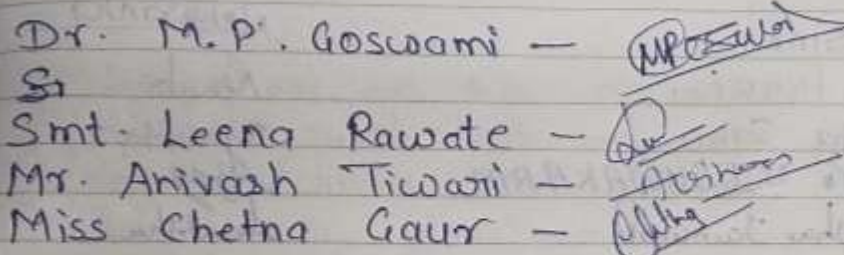 Dr. M.P. Goswami -
Smt. Leena Rawate -
Mr. Anivash Tiwari -
Miss Chetna Gaur -